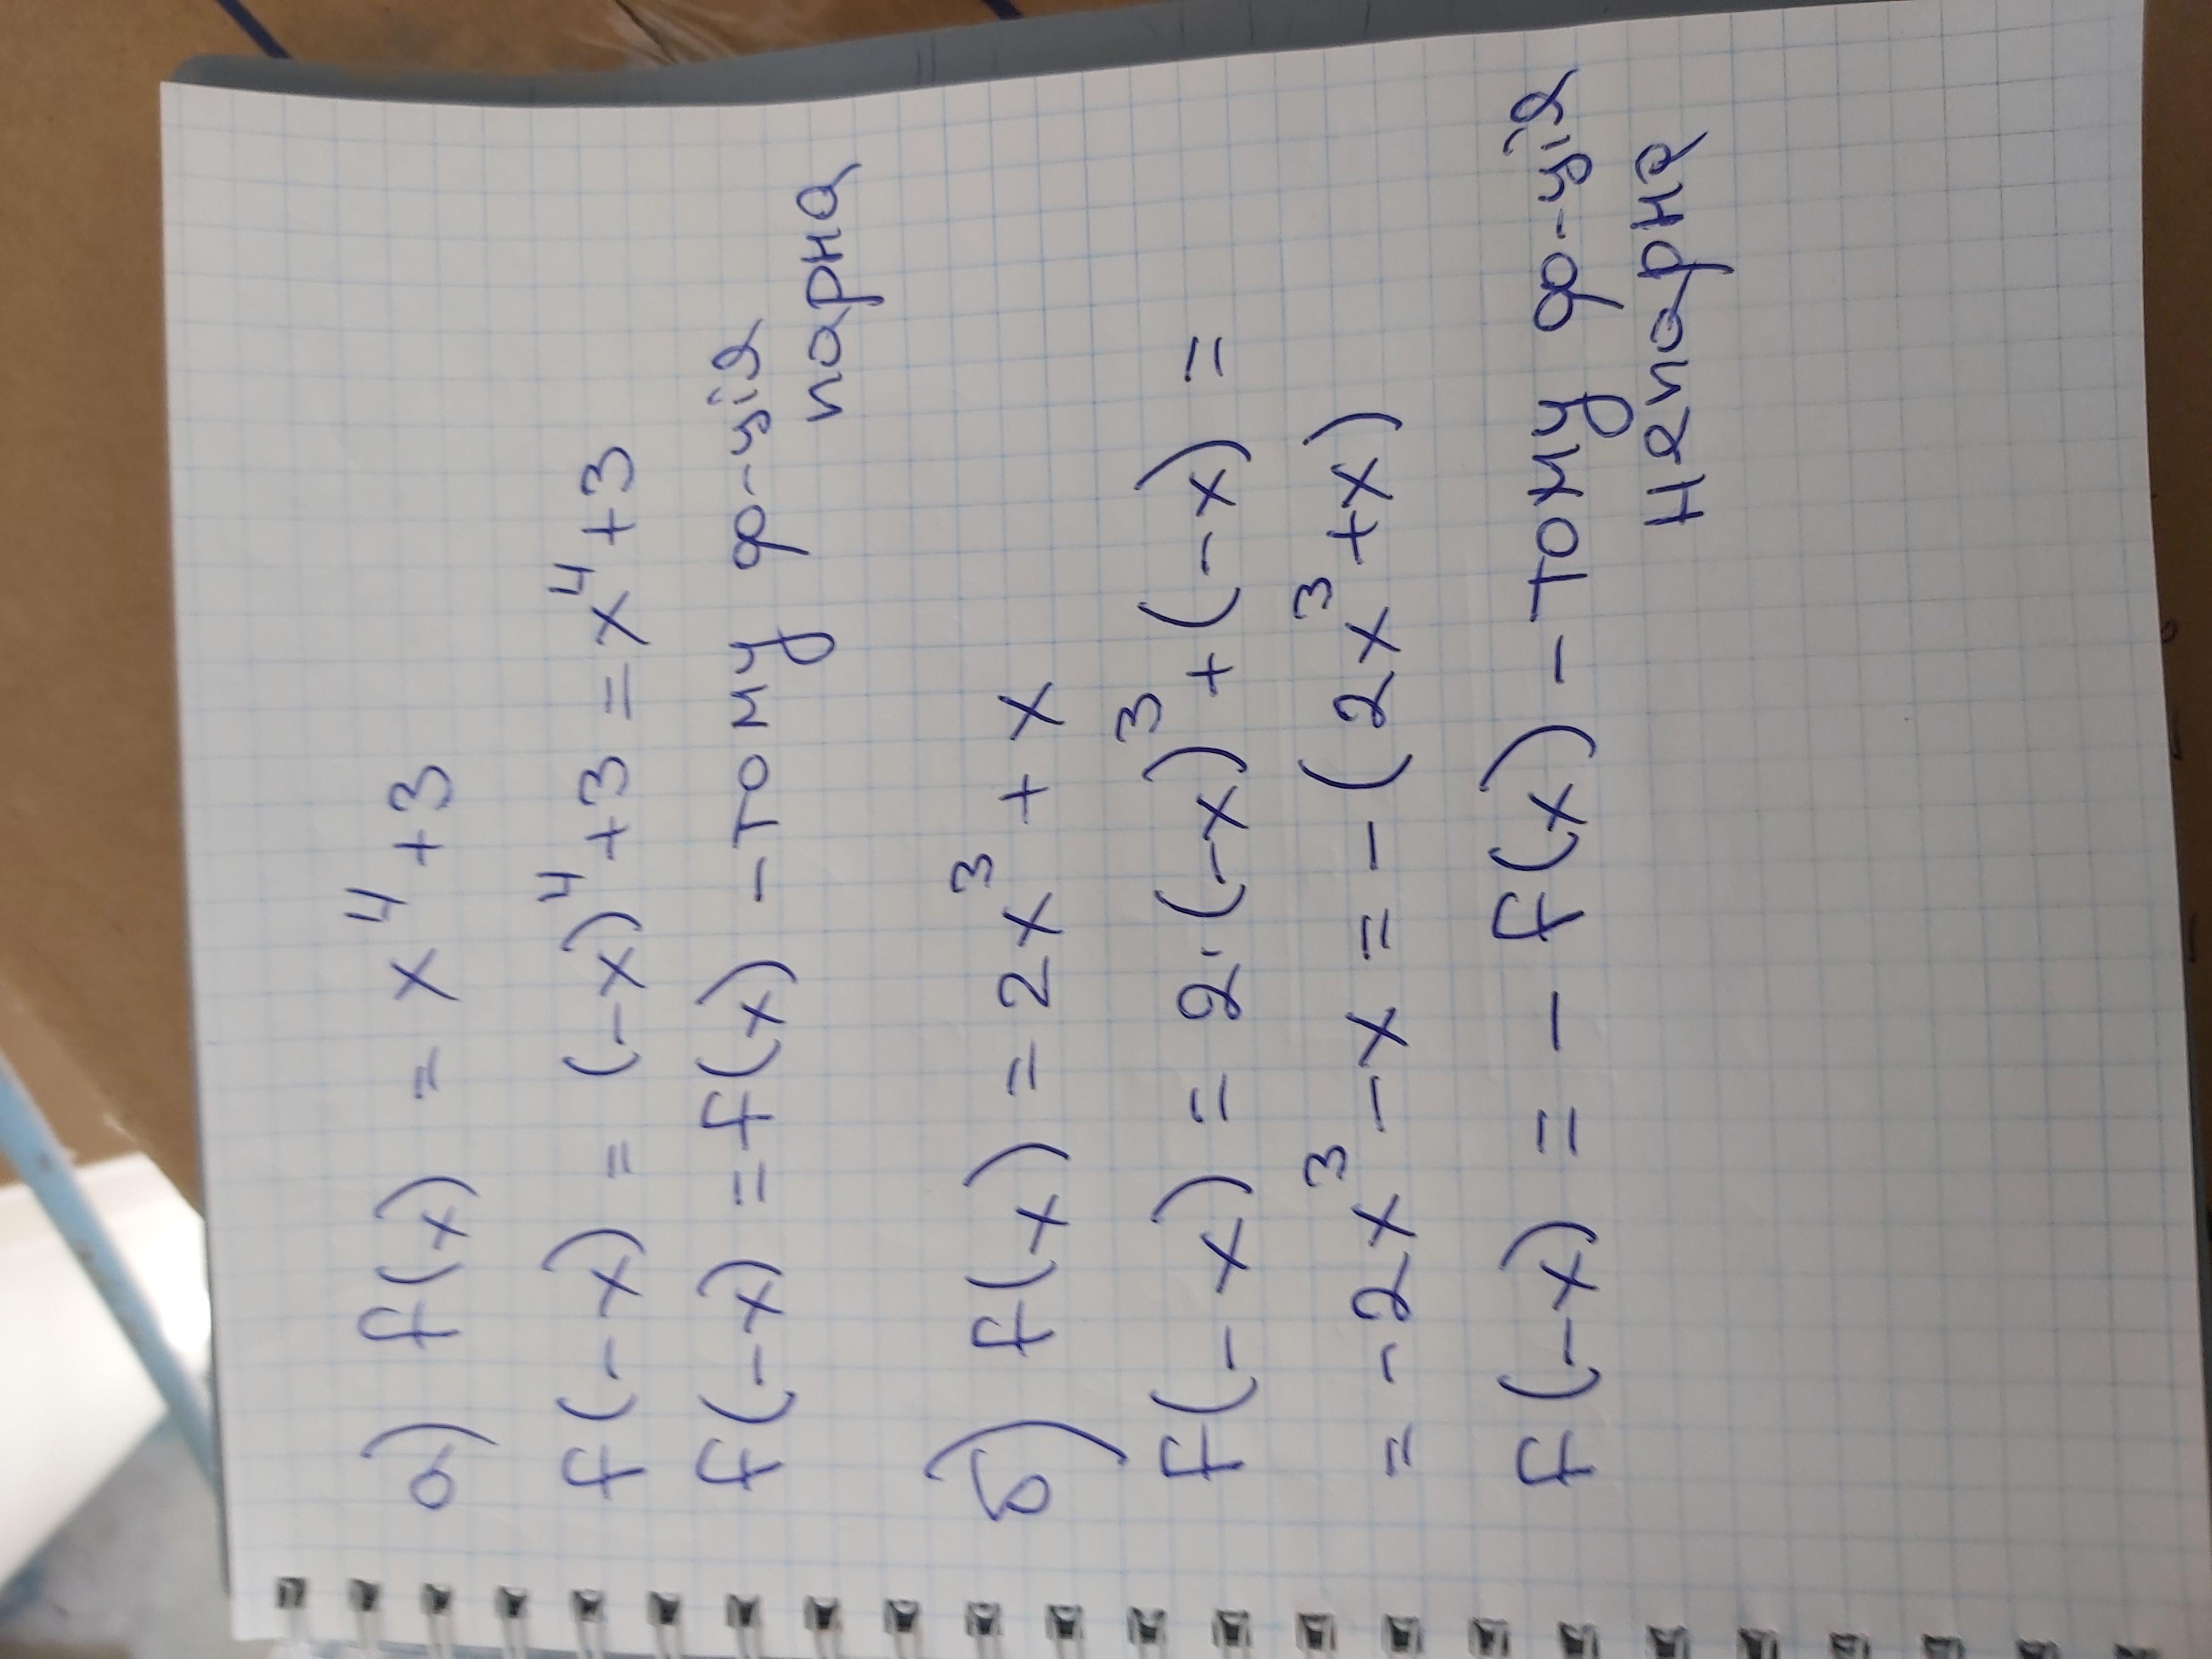 а) f(x) = x⁴ + 3
f(-x) = (-x)⁴ + 3 = x⁴ + 3
f(-x) = f(x) - тому ф-ція
парна
б) f(x) = 2x³ + x
f(-x) = 2·(-x)³ + (-x) =
= -2x³ - x = -(2x³ + x)
f(-x) = - f(x) - тому ф-ція
непарна